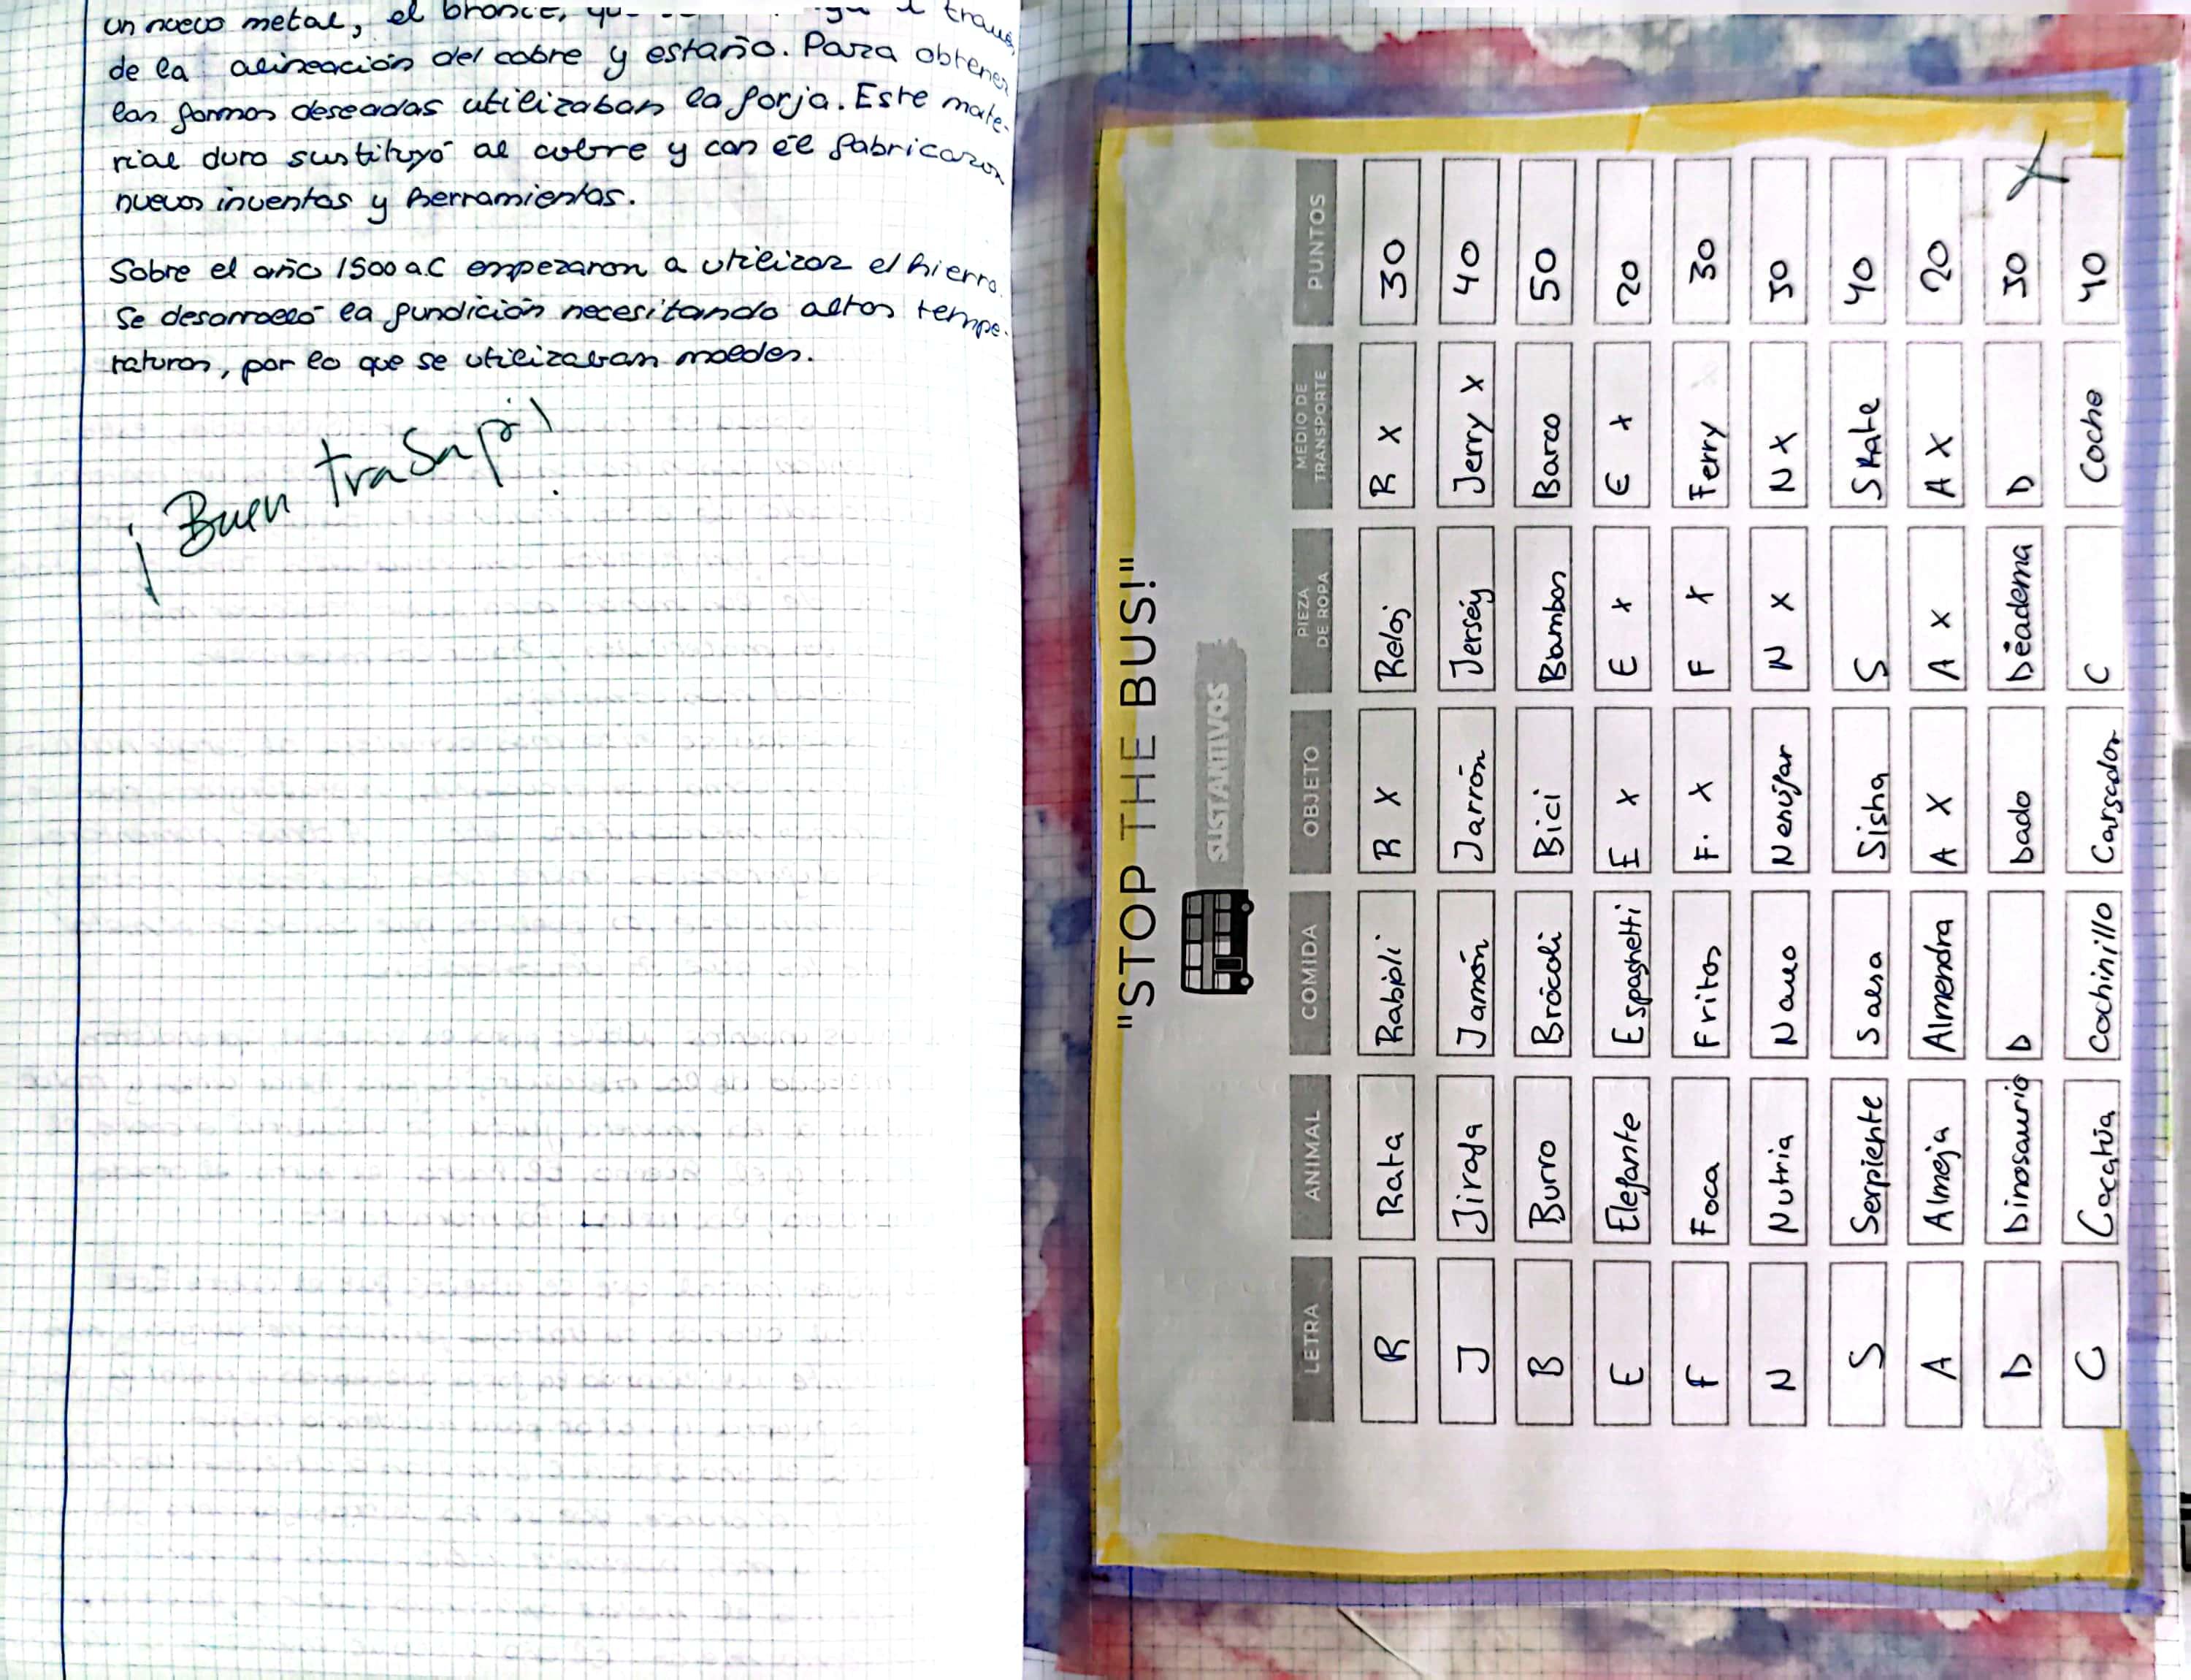 un nuevo metal, el bronce,
de la alineación del cobre y estaño. Para obtener
las formas deseadas utilizaban la forja. Este mate-
rial duro sustituyó al cobre y con él fabricaron
nuevos inventos y herramientas.
Sobre el año 1500 a.C empezaron a utilizar el hierro.
Se desarrolló la fundición necesitando altas tempe-
raturas, por lo que se utilizaban moldes.
¡Buen trabajo!
"STOP THE BUS!"
SUSTANTIVOS
LETRA ANIMAL COMIDA OBJETO PIEZA DE ROPA MEDIO DE TRANSPORTE PUNTOS
R Rata Rabioli R X Reloj R X 30
J Jirafa Jamón Jarrón Jerséy Jerry X 40
B Burro Brócoli Bici Bambos Barco 50
E Elefante Espaghetti E X E X E X 20
F Foca Fritos F. X F X Ferry 30
N Nutria Navo Nenúfar N X N X 30
S Serpiente Salsa Sisha S Skate 40
A Almeja Almendra A X A X A X 20
D Dinosaurio D Dado Diadema D 30
C Cacatúa Cochinillo Cargador C Coche 40